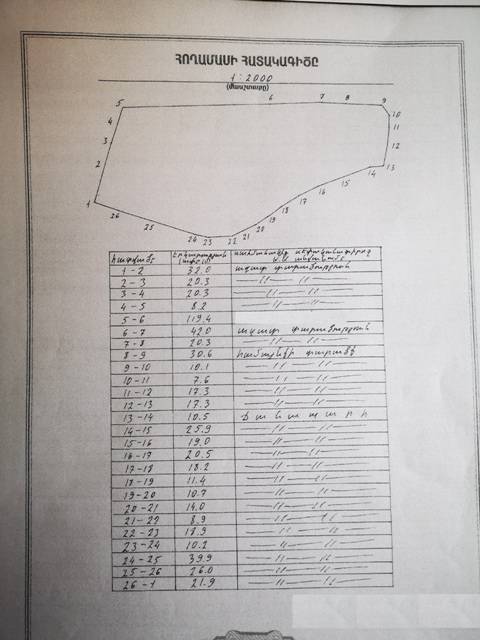 ՀՈՂԱՄԱՍԻ ՀԱՏԱԿԱԳԻԾԸ
1:2000
(մասշտաբը)
5 6 7 8 9
4 10
3 11
2 12
1 13
14
15
26 17
25 18
19
20
24 23 22 21
1-2 32.0 ազատ տարածություն
2-3 20.3 —〃— 〃—
3-4 20.3 —〃— 〃—
4-5 8.2 —〃— 〃—
5-6 119.4
6-7 42.0 ազատ տարածություն
7-8 20.3 —〃— 〃—
8-9 30.6 համայնքի տարածք
9-10 10.1 —〃— 〃—
10-11 7.6 —〃— 〃—
11-12 17.3 —〃— 〃—
12-13 17.3 —〃— 〃—
13-14 10.5 Ճանապարհ
14-15 25.9 —〃— 〃—
15-16 19.0 —〃— 〃—
16-17 20.5 —〃— 〃—
17-18 18.2 —〃— 〃—
18-19 11.4 —〃— 〃—
19-20 10.7 —〃— 〃—
20-21 14.0 —〃— 〃—
21-22 8.9 —〃— 〃—
22-23 18.9 —〃— 〃—
23-24 10.2 —〃— 〃—
24-25 39.9 —〃— 〃—
25-26 26.0 —〃— 〃—
26-1 21.9 —〃— 〃—